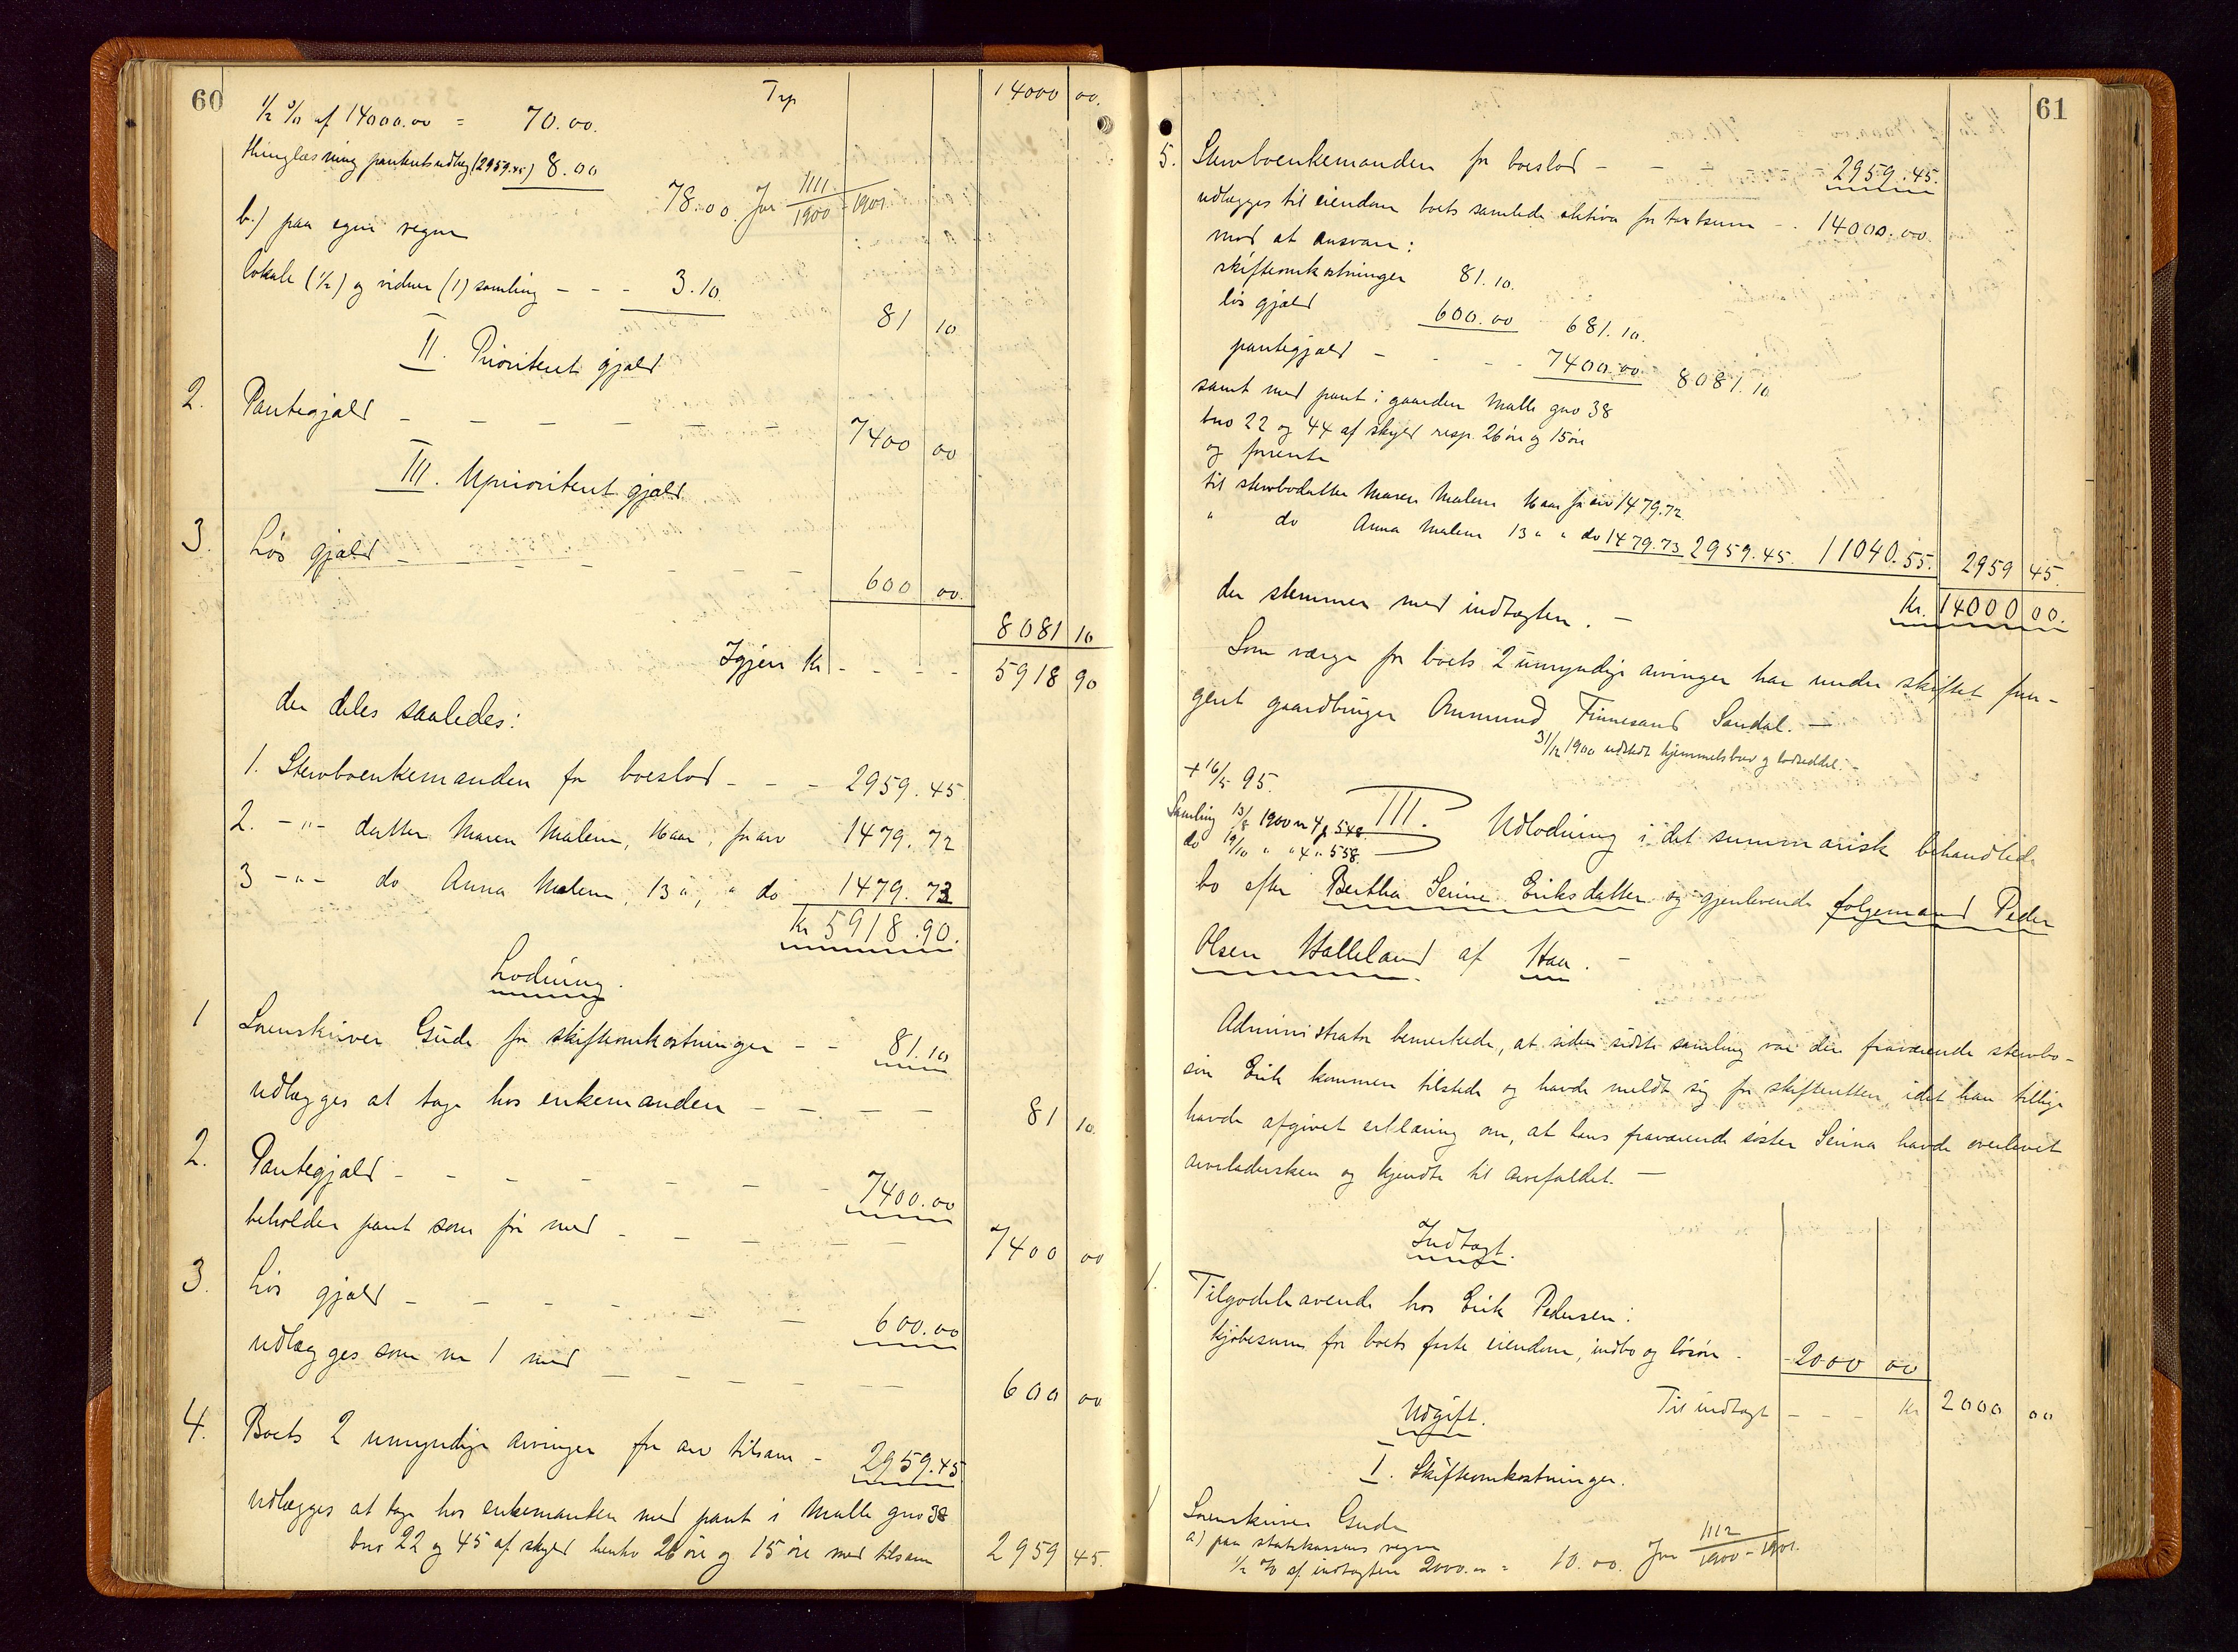 60
Trp 14000 00.
1/2 % af 14000.00 = 70.00.
thinglæsning panteudlæg (2959.45) 8.00
78.00. Jnr 1111/1900-1901.
b.) paa egen regn
lokale (1/2) og vidner (1) samling - - - 3.10.
81 10
II. Prioritert gjæld
2. Pantegjæld - - - - - 7400 00
III. Uprioritert gjæld
3. Løs gjæld - - - - - - - 600 00.
8081 10
Igjen Kr - - - - 5918 90
der deles saaledes:
1. Stervboenkemanden for boeslod - - - 2959.45.
2. -"- datter Maren Malene, 16 aar, for arv 1479.72
3 -"- do Anna Malene, 13 ", " do 1479.73
Kr 5918.90.
Lodning.
1 Sorenskriver Gude for skifteomkostninger - - 81.10
udlægges at tage hos enkemanden - - - - 81 10.
2. Pantegjæld - - - - - - - - 7400.00
beholder pant som før med - - - - - - 7400 00
3. Løs gjæld - - - - - - 600.00
udlægges som no 1 med - - - - - - 600 00
4. Boets 2 umyndige arvinger for arv tilsam - 2959.45
udlægges at tage hos enkemanden med pant i Malle gno 38
bno 22 og 45 af skyld henhv 26 øre og 15 øre med tilsam 2959 45.
61
5. Stervboenkemanden for boeslod - - - - 2959.45.
udlægges til eiendom boets samlede aktiva for taxtsum - . 14000.00.
mod at ansvare:
skifteomkostninger 81.10.
løs gjæld 600.00 681.10.
pantegjæld - - - - 7400.00 8081.10
samt med pant i gaarden Malle gno 38
bno 22 og 44 af skyld resp. 26 øre og 15 øre
og forrente
til stervbodatter Maren Malene 16 aar for arv 1479.72
" do Anna Malene 13 " " do 1479.73 2959.45. 11040.55. 2959 45.
der stemmer med indtægten. - Kr. 14000 00.
Som værge for boets 2 umyndige arvinger har under skiftet fun-
geret gaardbruger Ommund Finnesand Sandal. -
31/12 1900 udstedt hjemmelsbrev og lodseddel. -
+ 16/5 95.
Samling 13/8 1900 no 4 p 548
do 19/10 " " 4 " 558.
III. Udlodning i det summarisk behandlede
bo efter Bertha Serine Eriksdatter og gjenlevende følgemand Peder
Olsen Halleland af Haa. -
Administrator bemerkede, at siden sidste samling var den fraværende stervbo-
søn Erik kommen tilstede og havde meldt sig for skifteretten, idet han tillige
havde afgivet erklæring om, at hans fraværende søster Serina havde overlevet
arveladersken og kjendte til arvefaldet. -
Indtægt.
1. Tilgodehavende hos Erik Pedersen:
kjøbesum for boets faste eiendom, indbo og løsøre - 2000 00
Til indtægt - - - Kr 2000 00
Udgift.
I. Skifteomkostninger.
1 Sorenskriver Gude
a) paa statskassens regn
1/2 % af indtægten 2000.00 = 10.00. Jnr 1112/1900-1901.